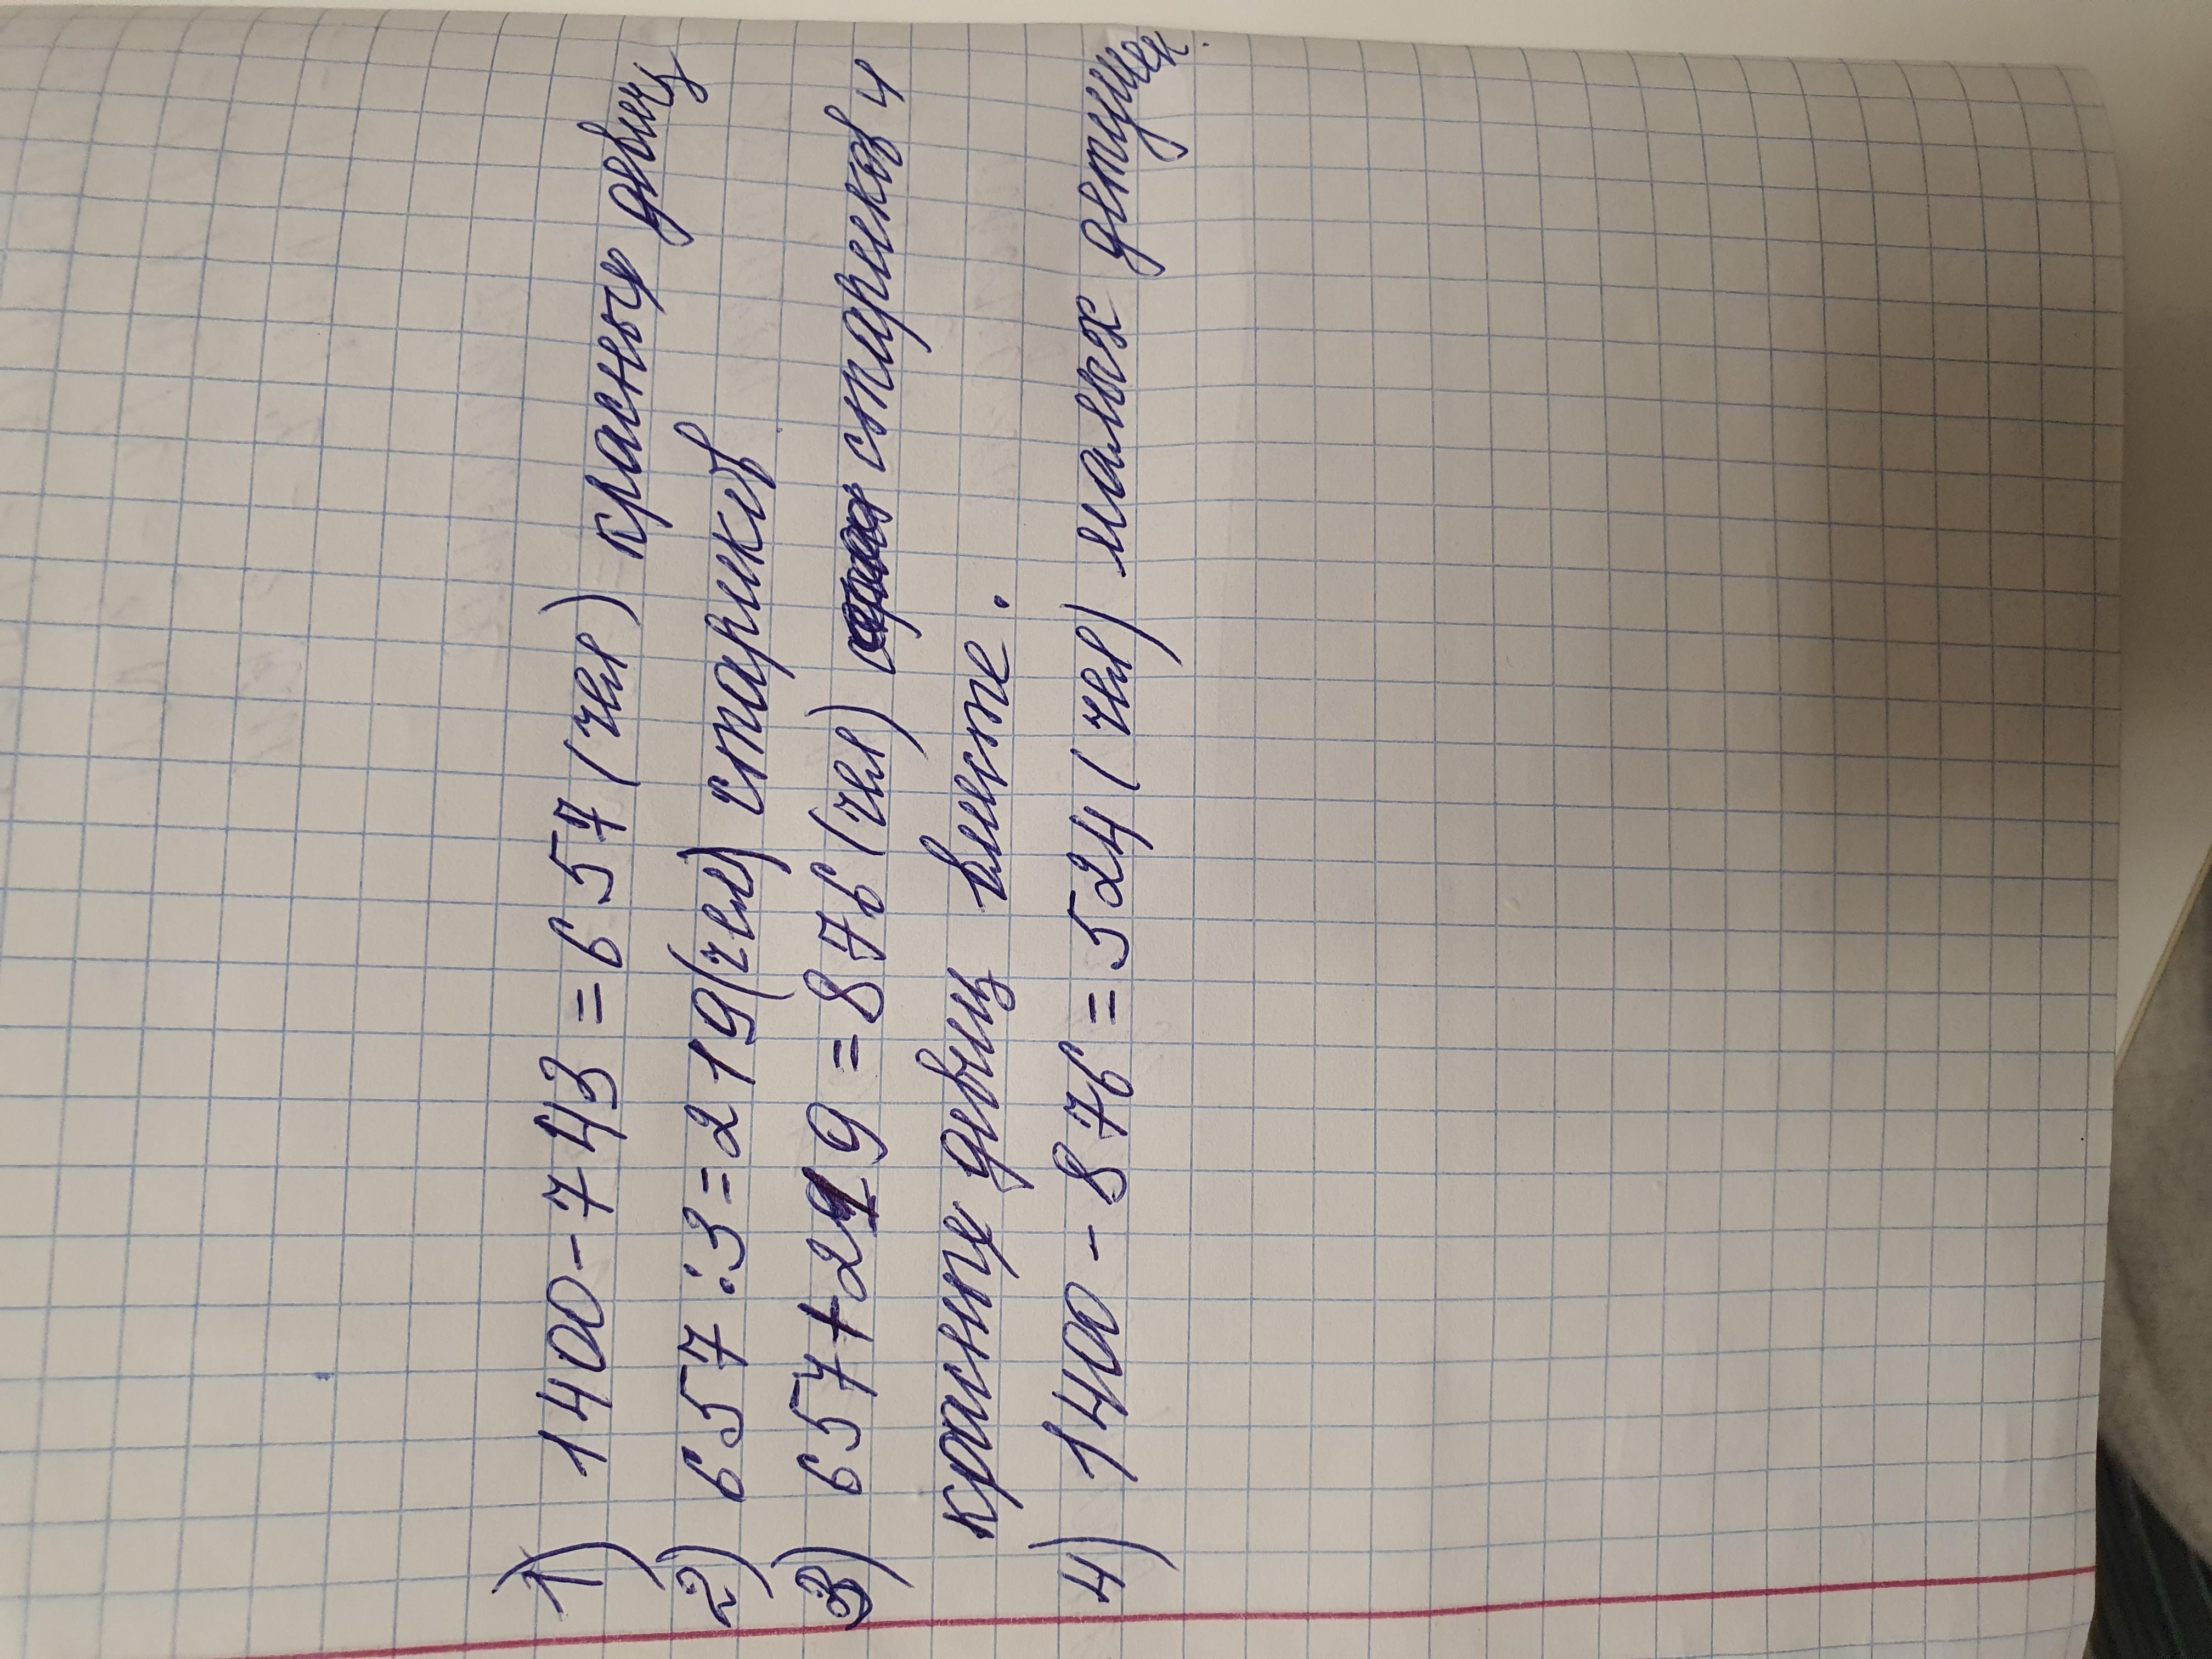 1) 1400-743=657 (чел) красных девиц
2) 657:3=219(чел) стариков
3) 657+219=876 (чел) стариков и
красных девиц вместе.
4) 1400-876=524 (чел) малых детушек